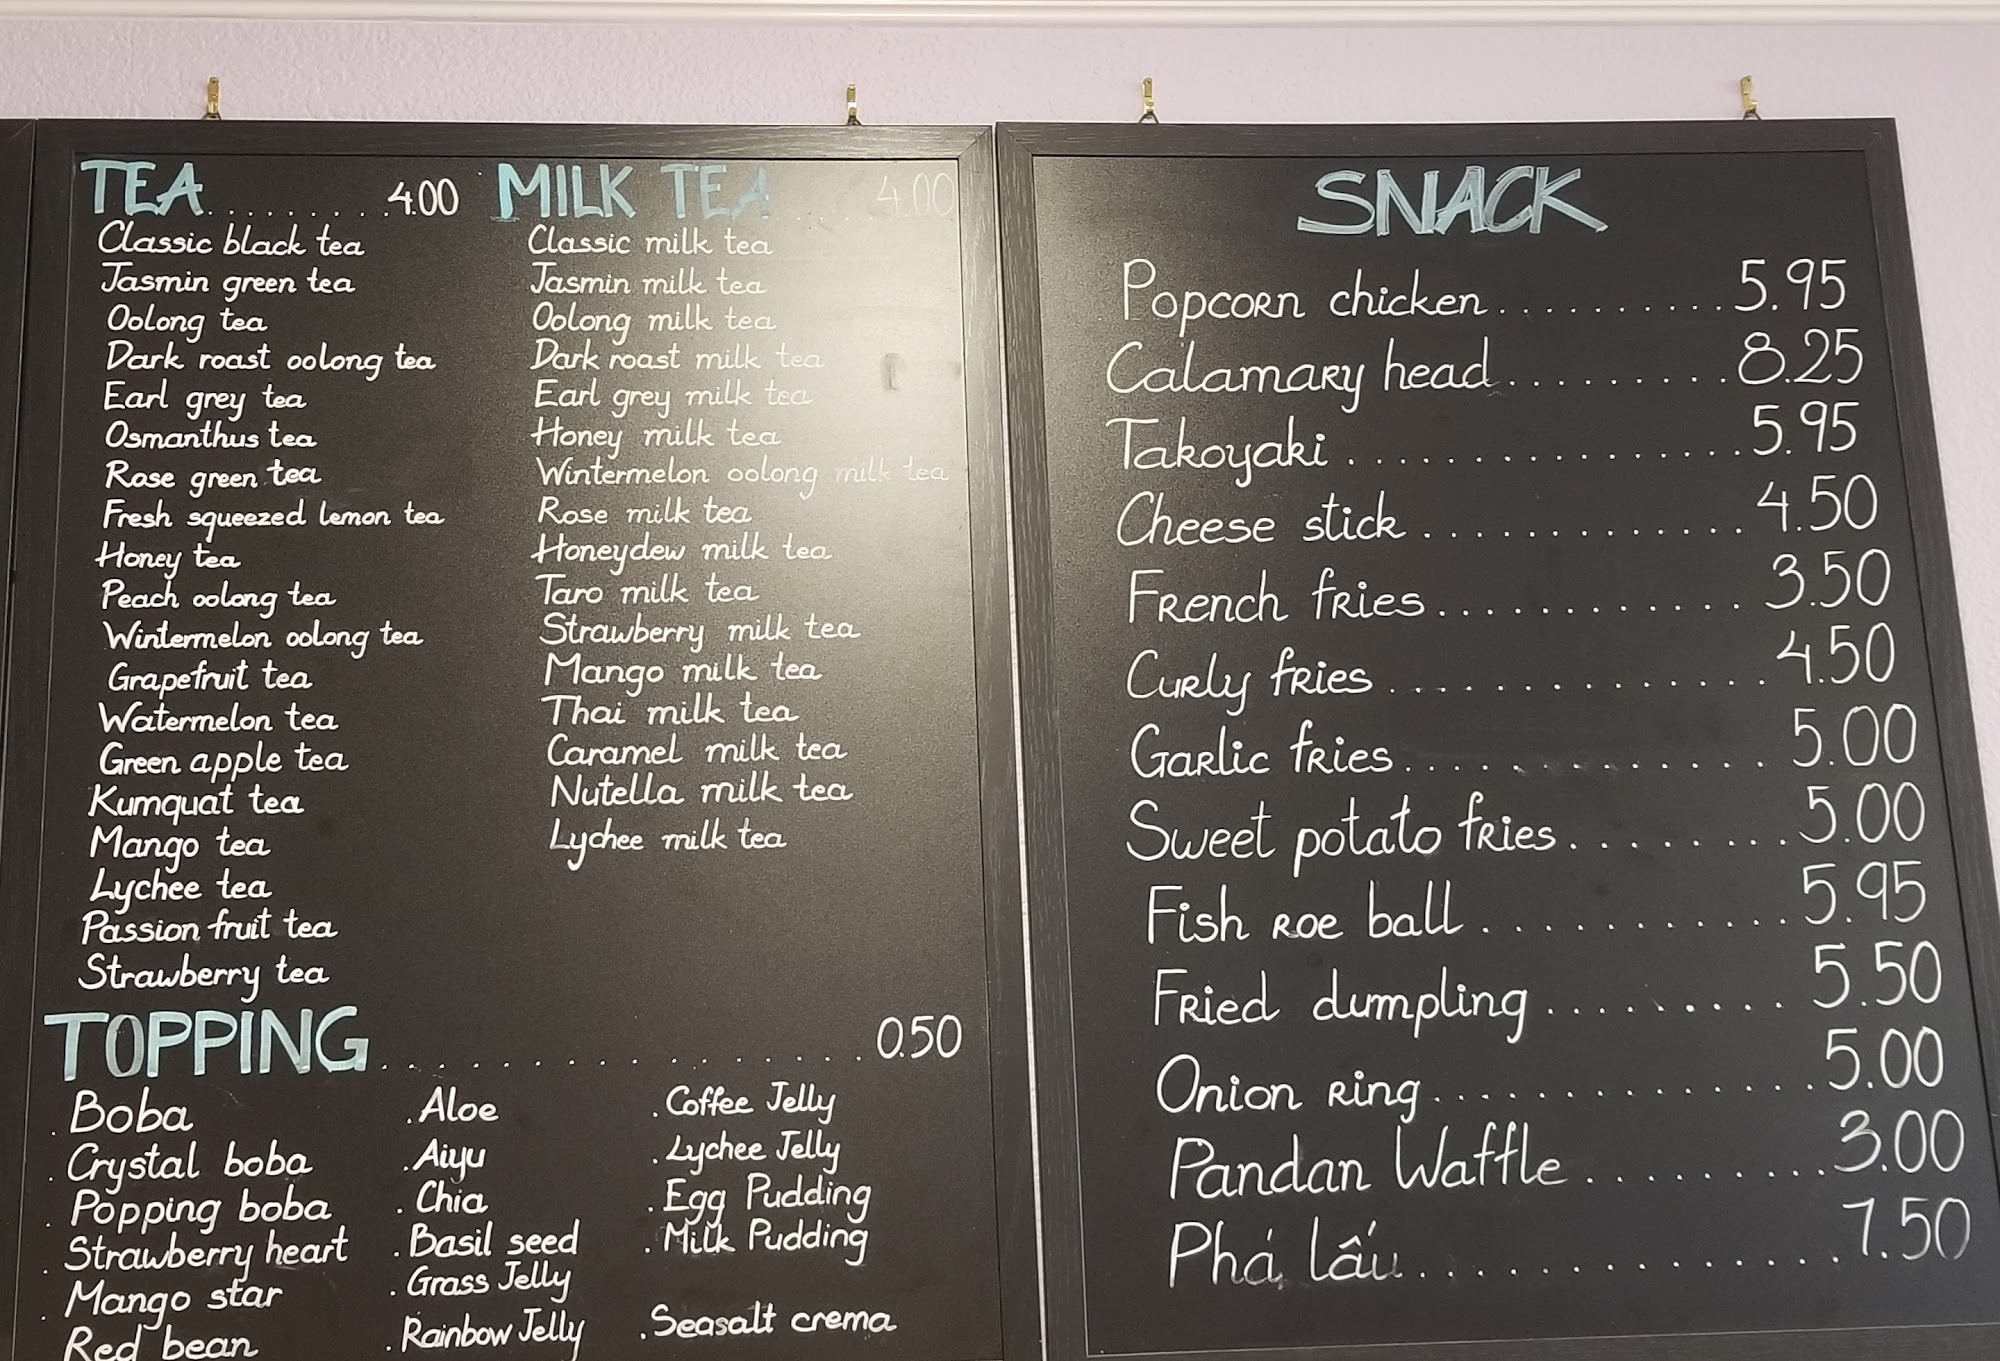 TEA ........ 4.00
Classic black tea
Jasmin green tea
Oolong tea
Dark roast oolong tea
Earl grey tea
Osmanthus tea
Rose green tea
Fresh squeezed lemon tea
Honey tea
Peach oolong tea
Wintermelon oolong tea
Grapefruit tea
Watermelon tea
Green apple tea
Kumquat tea
Mango tea
Lychee tea
Passion fruit tea
Strawberry tea
MILK TEA .... 4.00
Classic milk tea
Jasmin milk tea
Oolong milk tea
Dark roast milk tea
Earl grey milk tea
Honey milk tea
Wintermelon oolong milk tea
Rose milk tea
Honeydew milk tea
Taro milk tea
Strawberry milk tea
Mango milk tea
Thai milk tea
Caramel milk tea
Nutella milk tea
Lychee milk tea
TOPPING ................ 0.50
. Boba
. Crystal boba
. Popping boba
. Strawberry heart
. Mango star
Red bean
. Aloe
. Aiyu
. Chia
. Basil seed
. Grass Jelly
. Rainbow Jelly
. Coffee Jelly
. Lychee Jelly
. Egg Pudding
. Milk Pudding
. Seasalt crema
SNACK
Popcorn chicken .......... 5.95
Calamary head .......... 8.25
Takoyaki ................ 5.95
Cheese stick ............. 4.50
French fries ............ 3.50
Curly fries .............. 4.50
Garlic fries ............. 5.00
Sweet potato fries ........ 5.00
Fish roe ball ............ 5.95
Fried dumpling ......... 5.50
Onion ring .............. 5.00
Pandan Waffle ......... 3.00
Phá lấu ............... 7.50